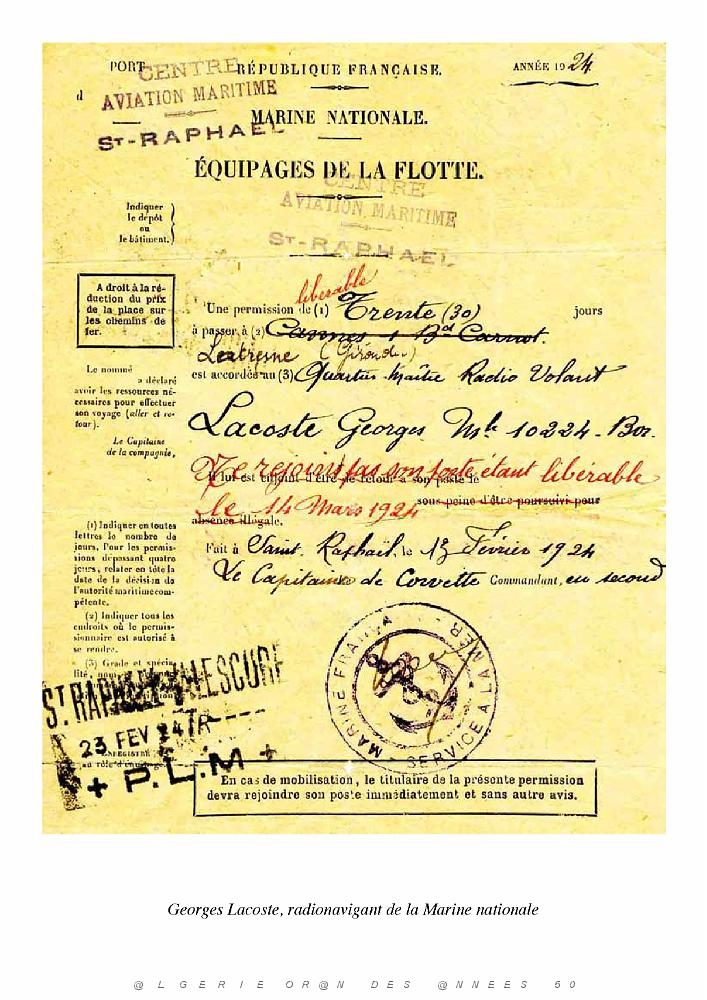 PORT
d
CENTRE
AVIATION MARITIME
ST-RAPHAEL
RÉPUBLIQUE FRANÇAISE.
ANNÉE 1924
MARINE NATIONALE.
ÉQUIPAGES DE LA FLOTTE.
CENTRE
AVIATION MARITIME
ST-RAPHAEL
Indiquer
le dépôt
ou
le bâtiment.
A droit à la ré-
duction du prix
de la place sur
les chemins de
fer.
libérable
Une permission de (1) Trente (30) jours
à passer à (2) Cannes 1 Bd Carnot.
(Gironde)
est accordée au (3) Quartier-Maître Radio Volant
Lacoste Georges Mle 10224-Bor.
Le nommé
a déclaré
avoir les ressources né-
cessaires pour effectuer
son voyage (aller et re-
tour).
Le Capitaine
de la compagnie,
Ne rejoint pas son poste étant libérable
Il lui est enjoint d'être de retour à son poste le
le 14 Mars 1924
sous peine d'être poursuivi pour
absence illégale.
Fait à Saint. Raphaël, le Février 1924
Le Capitaine de Corvette Commandant, en second
(1) Indiquer en toutes
lettres le nombre de
jours. Pour les permis-
sions dépassant quatre
jours, relater en tête la
date de la décision de
l'autorité maritime com-
pétente.
(2) Indiquer tous les
endroits où le permis-
sionnaire est autorisé à
se rendre.
(3) Grade et spécia-
lité,
ST RAPHAEL VALESCURE
23 FEV 24
+ P.L.M +
ENREGISTRÉ
au rôle d'équipage
MARINE FRANÇAISE
SERVICE A LA MER
En cas de mobilisation, le titulaire de la présente permission
devra rejoindre son poste immédiatement et sans autre avis.
Georges Lacoste, radionavigant de la Marine nationale
@ L G E R I E O R @ N D E S @ N N E E S 5 0